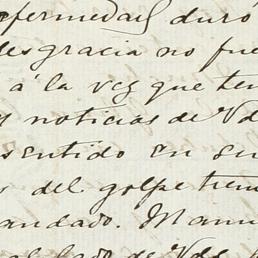 enfermedad duró
desgracia no fue
á la vez que ten
y noticias de Vd
sentido en su
s del golpe tiem
andado. Manu
al lado de Vds.